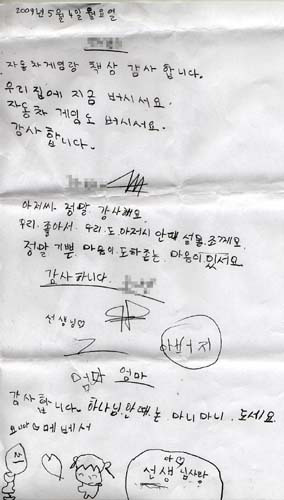 2009년 5월 4일 월요일
자동차게임랑 책상 감사합니다.
우리집에 지금 버서서요.
자동차 게임도 버서서요.
감사합니다.
아저씨. 정말 감사해요
우리. 좋아서. 우리. 도 아저시 안때 설물. 조께요.
정말 기쁜. 마음이. 도하준는. 마음이. 있서요
감사하니다.
선생님♡
아버지
엄마
감사합니다. 하나님. 안때. 는 마니마니. 도세요.
메베서
선생님사랑